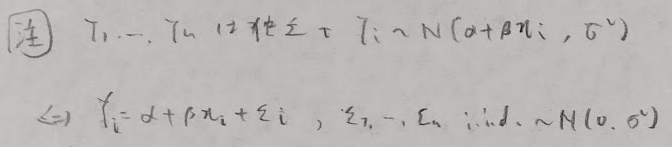 注 Y₁, …, Yₙ は独立で Yᵢ ~ N(α+βxᵢ, σ²)
⇔ Yᵢ = α+βxᵢ+εᵢ, ε₁, …, εₙ i.i.d. ~ N(0, σ²)